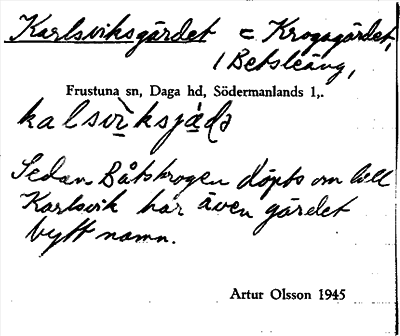 Karlsviksgärdet = Krogagärdet,
1 Betsleäng,
Frustuna sn, Daga hd, Södermanlands l,.
kalsviksjäḍə
Sedan Båtskrogen döpts om till
Karlsvik har även gärdet
bytt namn.
Artur Olsson 1945